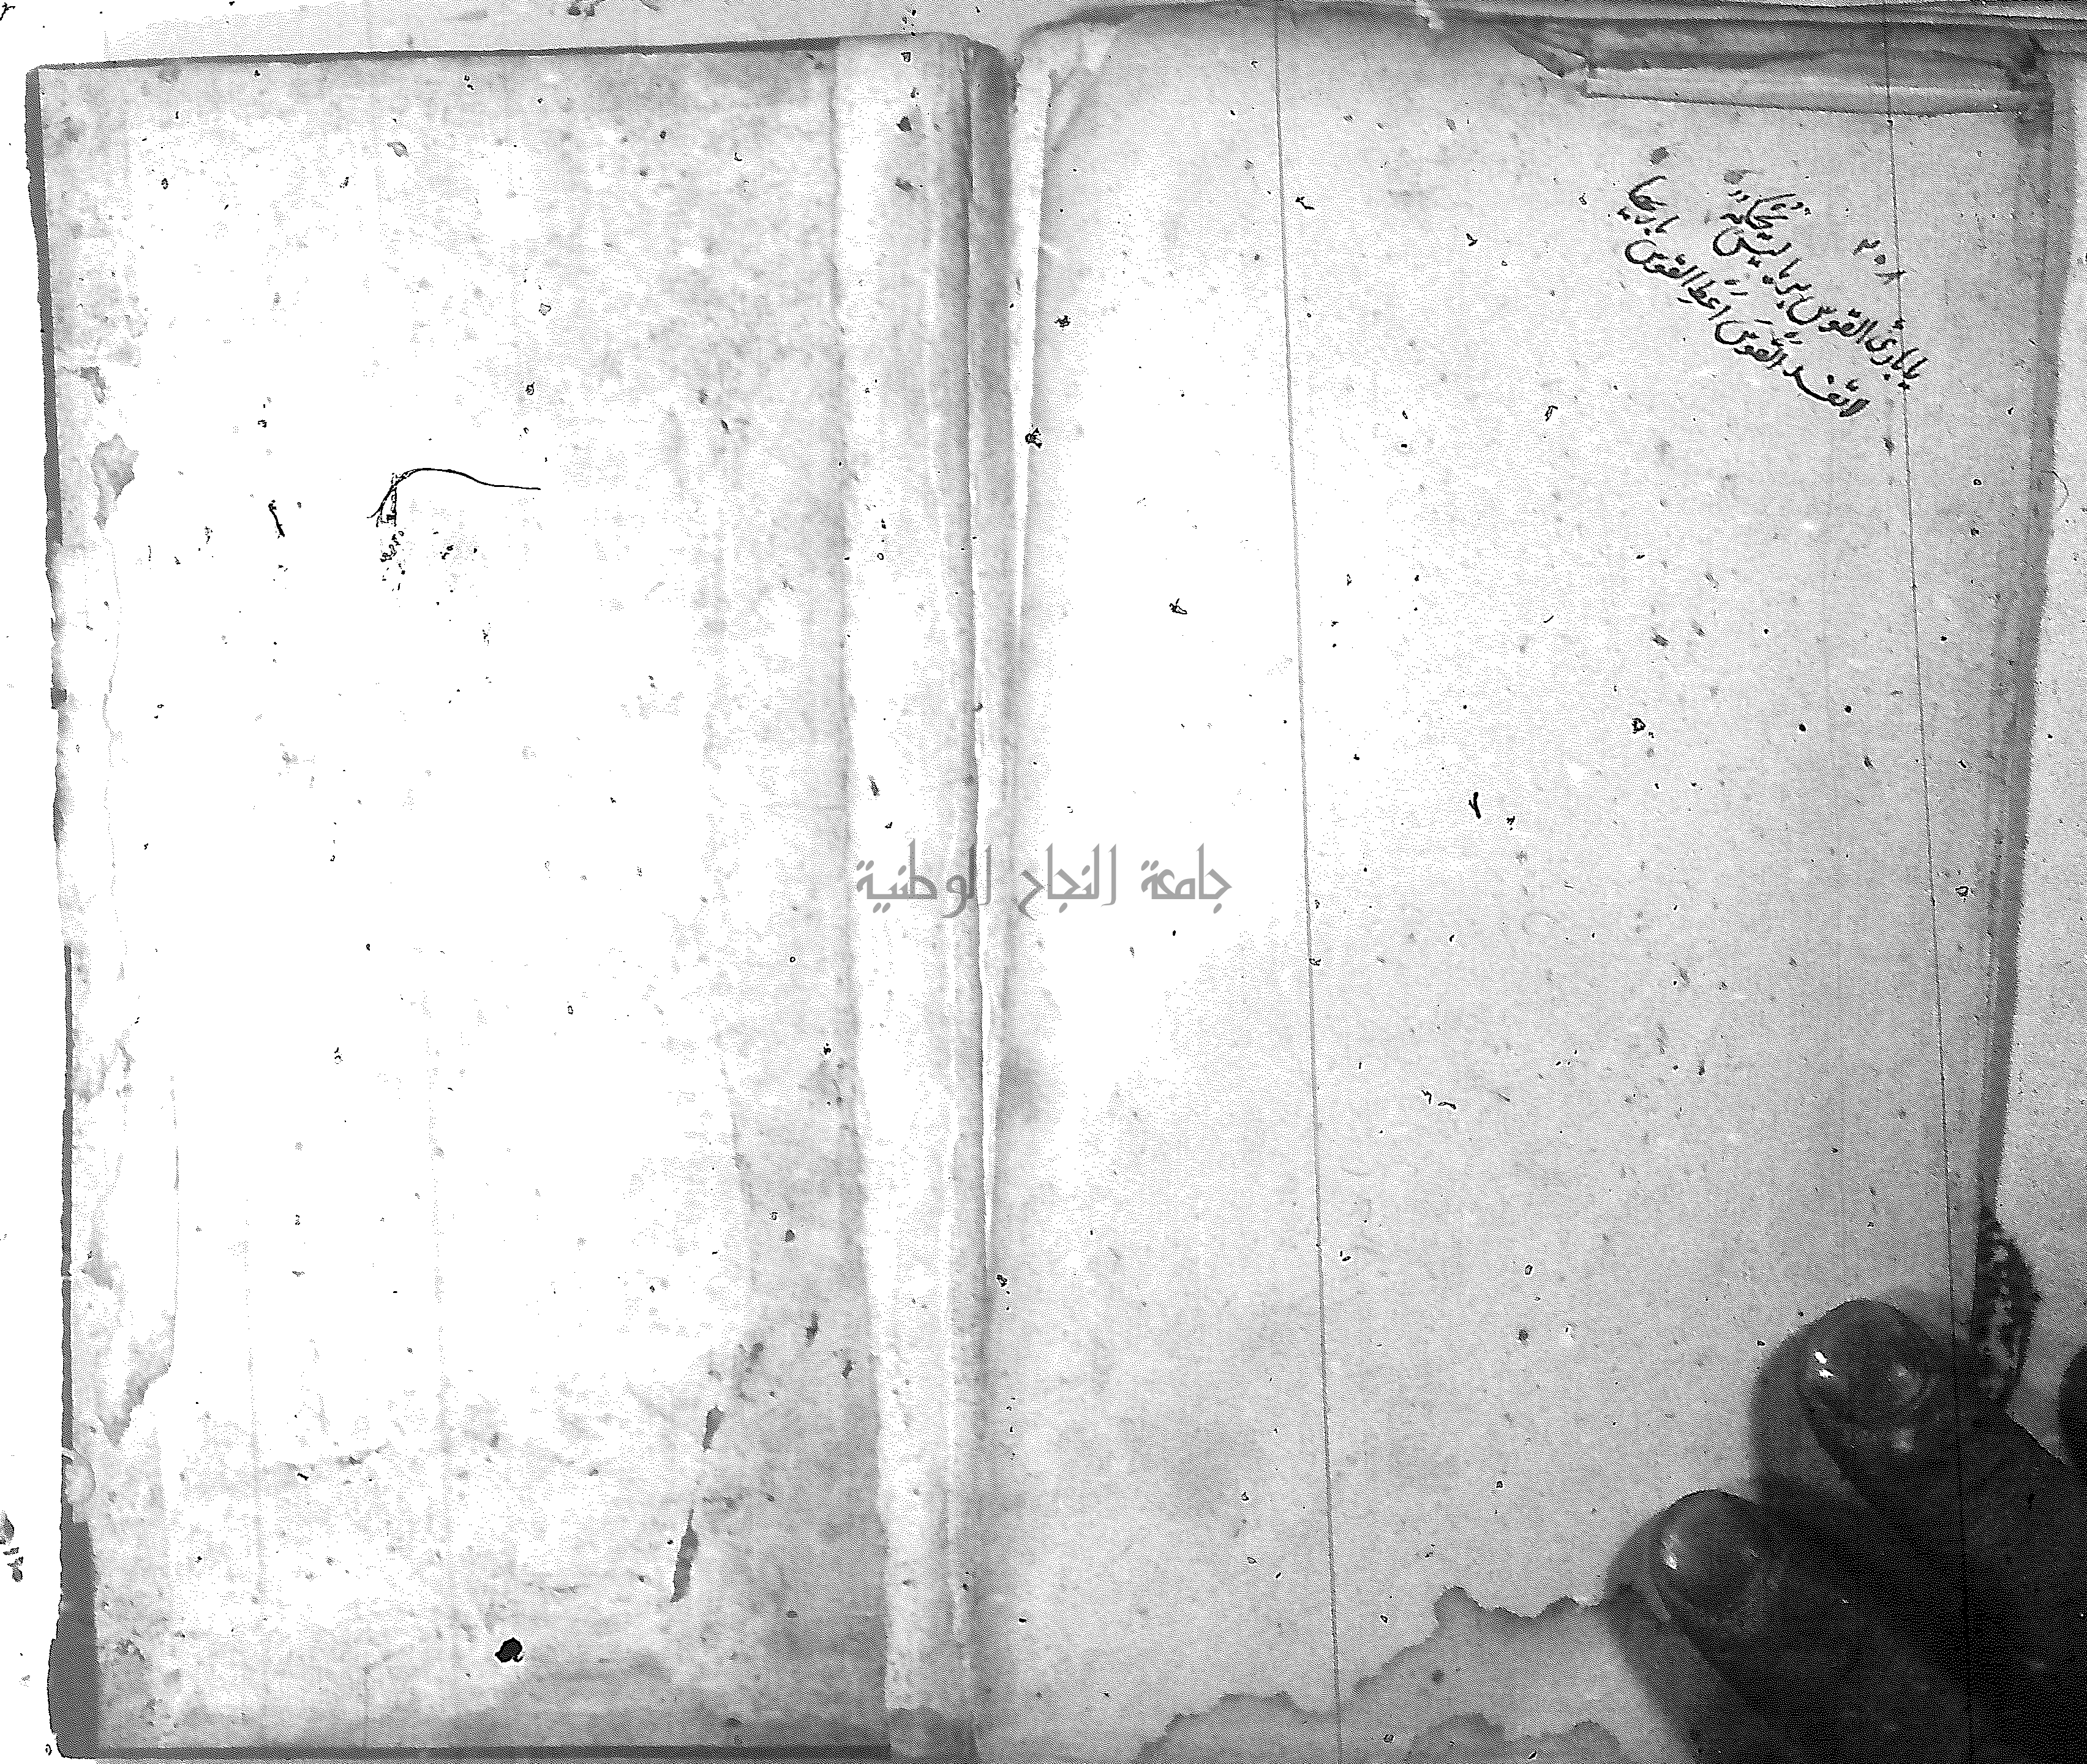 ٢٠٨
يا باري القوس بريا ليس تحكمه
لا تفسد القوس اعط القوس باريها
جامعة النجاح الوطنية